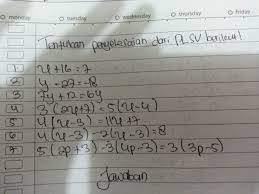 monday tuesday wednesday thursday friday
Tentukan penyelesaian dari PLSV berikut
1 x+16=7
2 y=27=-8
3 7y+12=64
4 3(2x+7)=5(x-4)
5 4(x-3)=11x+7
6 4(x-3)-2(x-3)=8
7 5(2p+3)-3(4p-3)=3(3p-5)
Jawaban